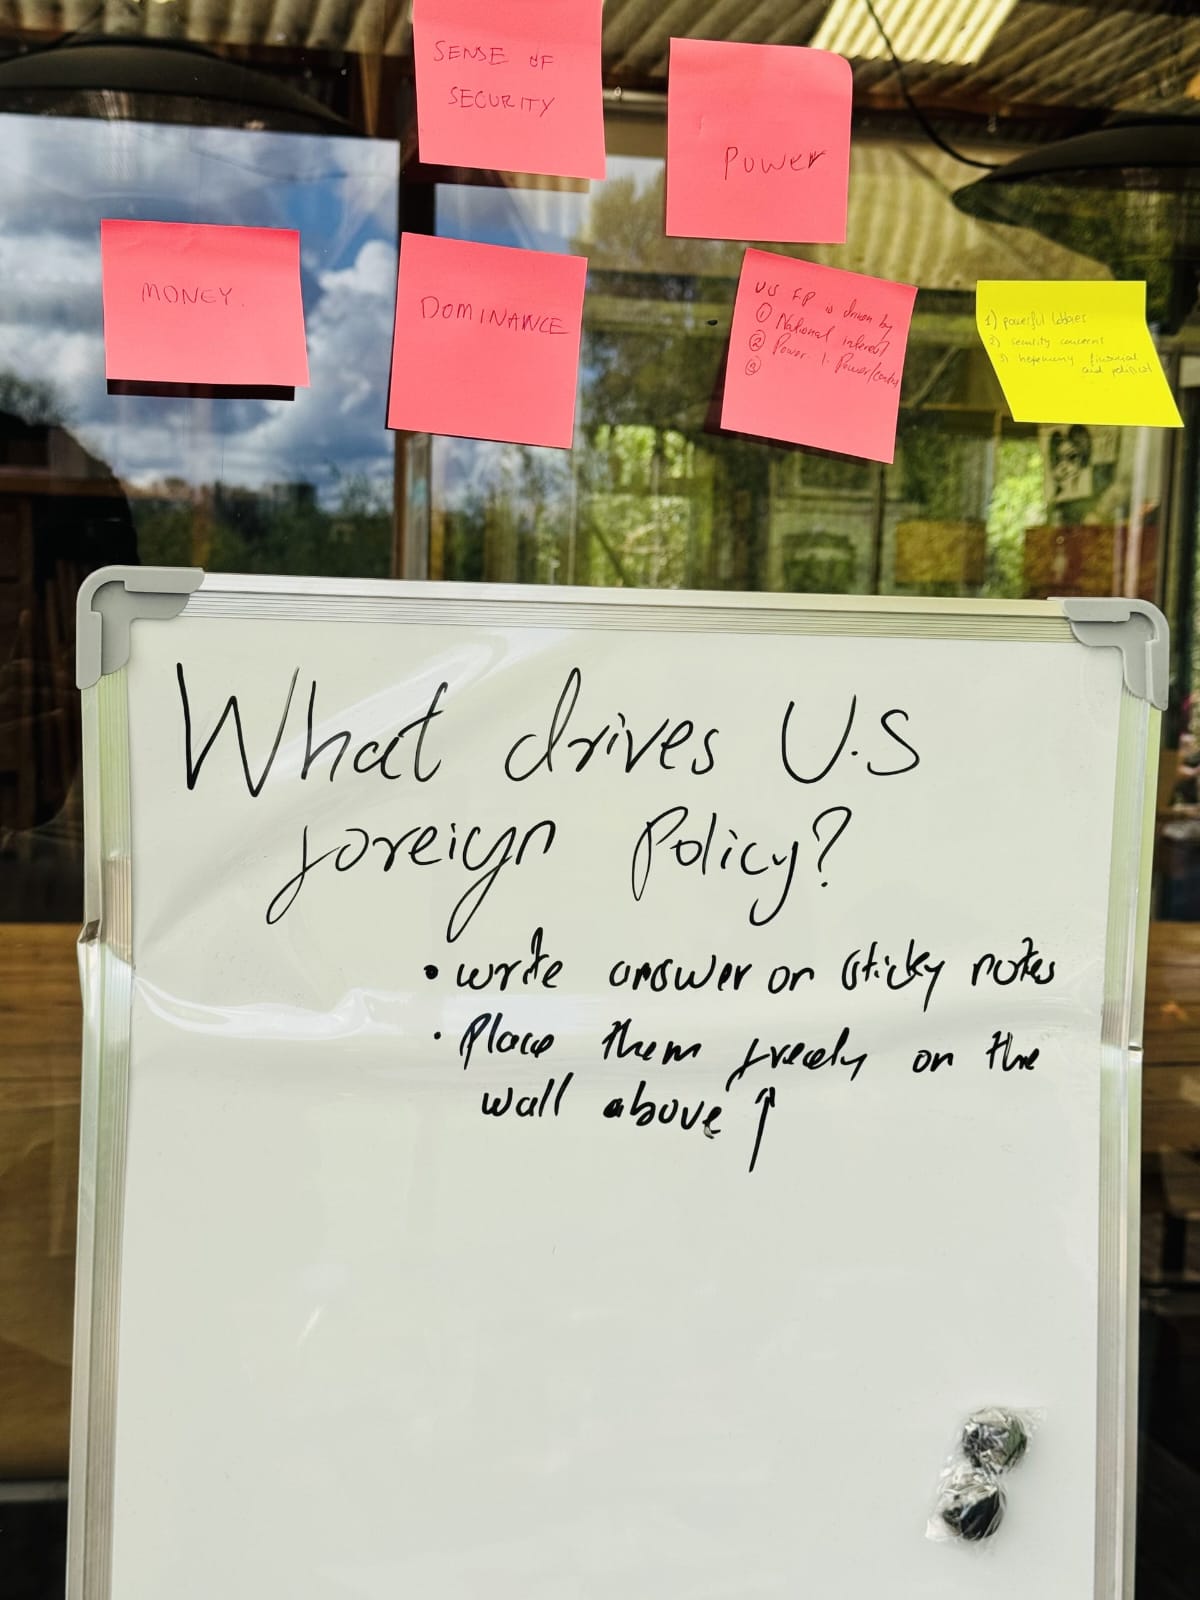 SENSE OF
SECURITY
Power
MONEY.
DOMINANCE
US FP is driven by
① National interest
② Power 1. Power/
③
1) powerful lobbies
2) security concerns
3) hegemony financial
and political
What drives U.S
foreign Policy?
• write answer on sticky notes
• Place them freely on the
wall above ↑